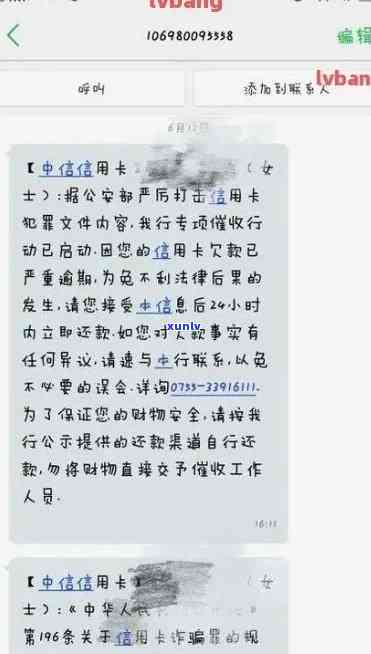 lvbang
106980095558 编辑
lvbang
呼叫 添加到联系人
6月12日
【中信信用卡 （女
士）：据公安部严厉打击信用卡
犯罪文件内容，我行专项催收行
动已启动.因您的信用卡欠款已
严重逾期，为免不利法律后果的
发生，请您接受中信息后24小时
内立即还款.如您对欠款事实有
任何异议，请速与中行联系，以免
不必要的误会.详询0755-33916111.
xunlv
为了保证您的财物安全，请按我
行公示提供的还款渠道自行还
款，勿将财物直接交予催收工作
人员.
16:11
【中信信用卡 （女
士）：《中华人民
第196条关于信用卡诈骗罪的规